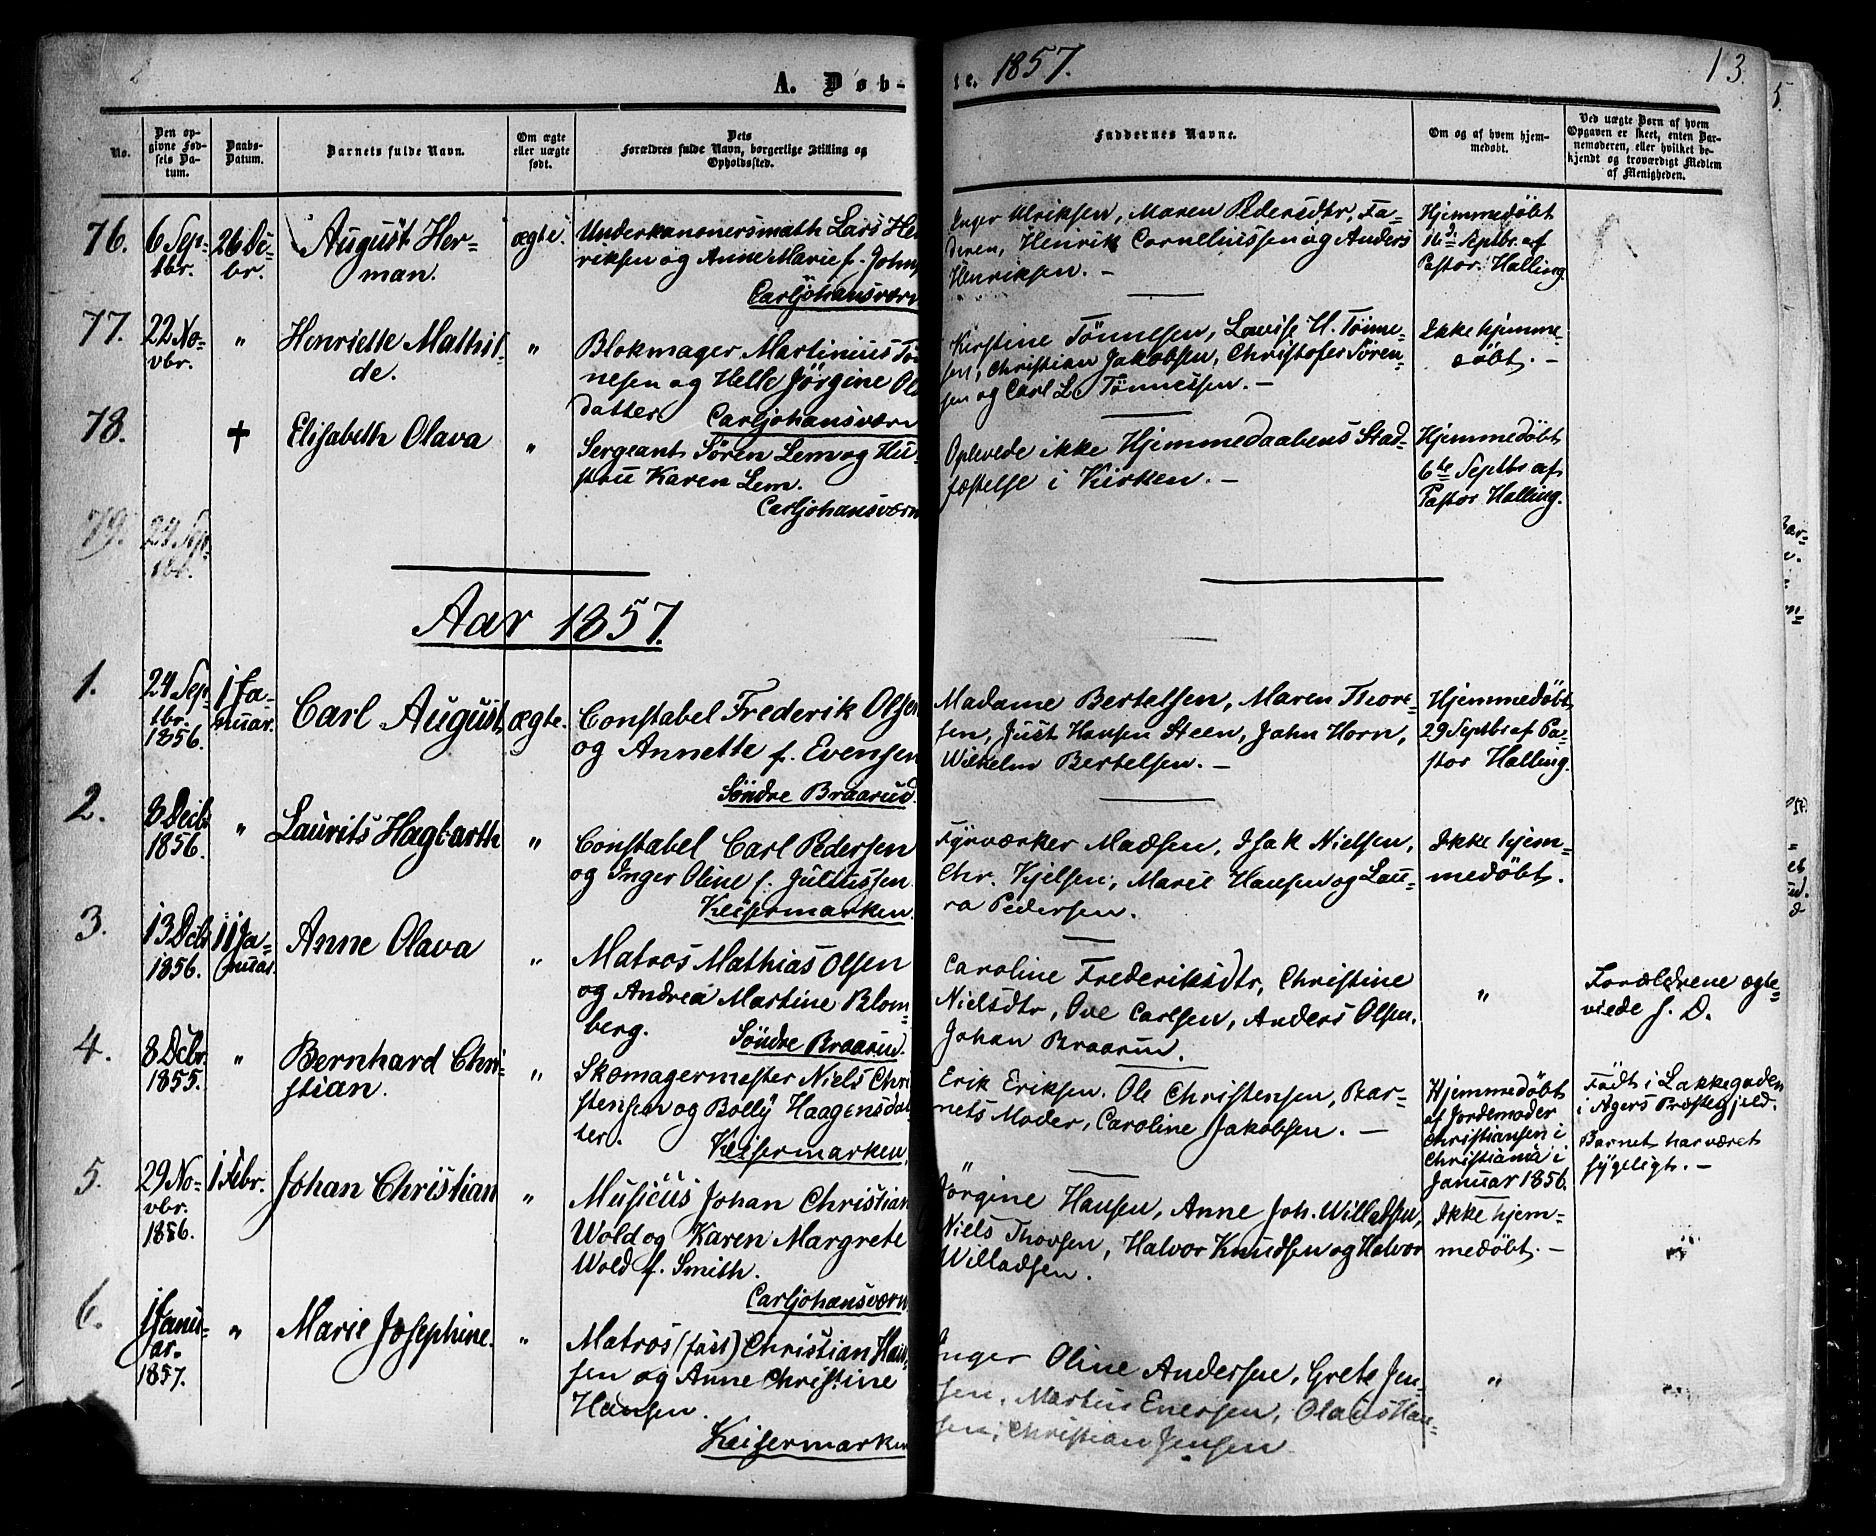 A. Døb-
te. 1857.
13.
No.
Den op-
givne Fød-
sels Da-
tum.
Daabs-
Datum.
Barnets fulde Navn.
Om ægte
eller uægte
født.
Dets
Forældres fulde Navn, borgerlige Stilling og
Opholdssted.
Faddernes Navne.
Om og af hvem hjem-
medøbt.
Ved uægte Børn af hvem
Opgaven er skeet, enten Bar-
nemoderen, eller hvilket be-
kjendt og troværdigt Medlem
af Menigheden.
76.
6 Sep-
tbr.
26 De-
br.
August Her-
man.
ægte.
Underkanonersmath Lars Hen
riksen og Anne Marie f. Johns
Carljohansværn
Inger Ulriksen, Maren Pedersdtr, Fa-
deren, Henrik Corneliussen og Anders
Henriksen. -
Hjemmedøbt
16d Septbr. af
Pastor Halling.
77.
22 No-
vbr.
"
Henriette Mathil-
de.
"
Blokmager Martinius Tön
nesen og Helle Jörgine Ols
datter Carljohansværn
Kirstine Tönnesen, Lovise H. Tönne-
sen, Christian Jakobsen, Christofer Sören-
sen og Carl L. Tönnessen. -
Ikke hjemme-
döbt. -
78.
+
Elisabeth Olava
"
Sergeant Sören Lem og Hu-
stru Karen Lem.
Carljohansværn
Oplevede ikke Hjemmedaabens Stad-
fæstelse i Kirken. -
Hjemmedöbt
6te Septbr af
Pastor Halling.
79.
24 Sep-
tbr.
Aar 1857.
1.
24 Sep
tbr.
1856.
1 Ja-
nuar.
Carl August
ægte.
Constabel Frederik Olsen
og Annette f. Evensen
Söndre Braarud.
Madame Bertelsen, Maren Thore-
sen, Just Hansen Steen, John Horn,
Wilhelm Bertelsen. -
Hjemmedöbt
29 Septbr af Pa-
stor Halling.
2.
8 Decbr
1856.
"
Laurits Hagbarth
"
Constabel Carl Pedersen
og Inger Oline f. Juliussen
Keisermarken.
Fyrværker Madsen, Isak Nielsen,
Chr. Kjelsen, Marie Hansen og Lau-
ra Pedersen.
Ikke hjem-
medöbt.
3.
13 Decbr
1856.
11 Ja-
nuar.
Anne Olava
"
Matros Mathias Olsen
og Andrea Martine Blom-
berg. Söndre Braarud.
Caroline Frederiksdtr, Christine
Nielsdtr, Ove Carlsen, Anders Olsen.
Johan Braarud.
"
Forældrene ægte-
viede s. D.
4.
8 Decbr.
1855.
"
Bernhard Chri-
stian.
"
Skomagermester Niels Chri
stensen og Bolly Haagensdat
ter. Keisermarken.
Erik Eriksen. Ole Christensen, Bar-
nets Moder, Caroline Jakobsen. -
Hjemmedöbt
af Jordemoder
Christiansen i
Christiania i
Januar 1856.
Född i Lakkegaden
i Agers Præstegjeld.
Barnet har været
sygeligt. -
5.
29 No-
vbr.
1856.
1 Febr.
Johan Christian
"
Musicus Johan Christian
Wold og Karen Margrete
Wold f. Smith.
Carljohansværn
Jörgine Hansen, Anne Joh. Willadsen,
Niels Thorsen, Halvor Knudsen og Halvor
Willadsen.
Ikke hjem-
medöbt. -
"
6.
1 Janu-
ar.
1857.
"
Marie Josephine.
"
Matros (fast) Christian Han
sen og Anne Christine
Hansen.
Keisermarken
Inger Oline Andersen, Grete Jen-
sen, Martin Enersen, Olaus Han-
sen, Christian Jensen.
"
"